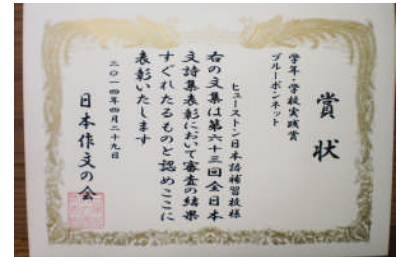 賞状
学年・学校実践賞
ブルーボンネット
ヒューストン日本語補習校様
右の文集は第六十三回全日本
文詩集表彰において審査の結果
すぐれたるものと認めここに
表彰いたします
二〇一四年四月二十九日
日本作文の会